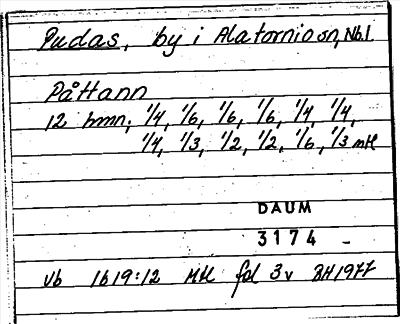 Pudas, by i Alatornio sn, Nb.l
Påttann
12 hmn; 1/4, 1/6, 1/6, 1/6, 1/4, 1/4,
1/4, 1/3, 1/2, 1/2, 1/6, 1/3 mtl
DAUM
3174 -
Vb 1619:12 Mtl fol 3v BH1977